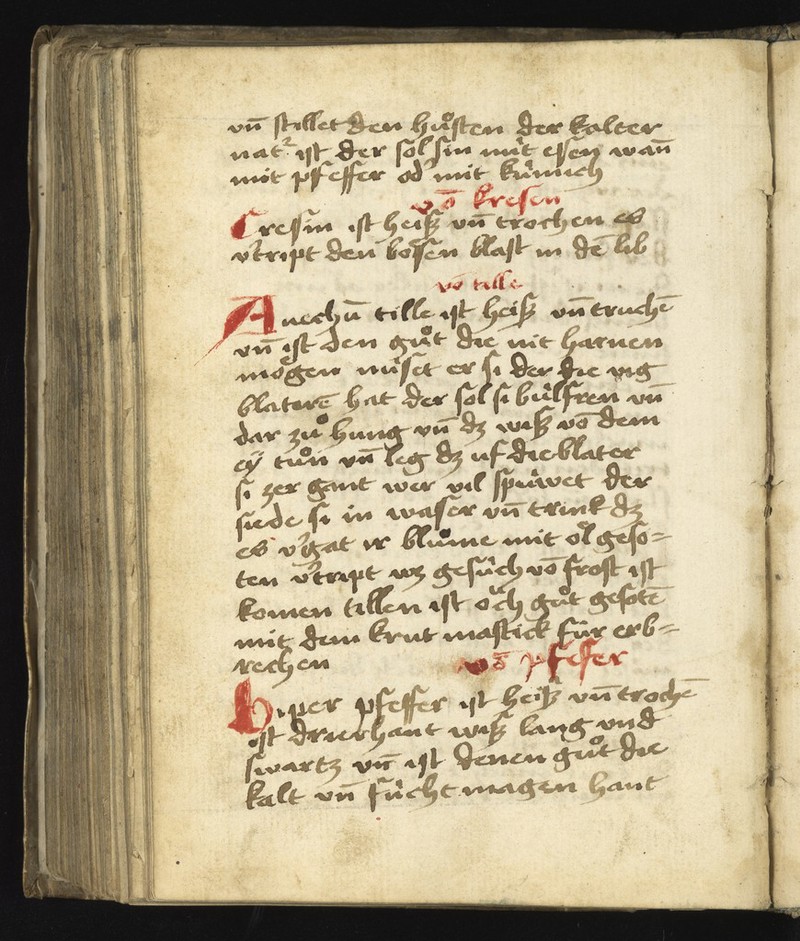 vn̄ stillet den hůsten der kalter
nat᷑ ist der sol sin nüt essen wan̄
mit pfeffer od᷑ mit kümich
vō kresen
Cressin ist heiß vn̄ trochen es
v᷑tript den bosen blast in dē lib
vō tille
Anechū tille ist heiß vn̄ truchē
vn̄ ist den gůt die nit harnen
mögen nüset er si der die vig
blaterē hat der sol si bülfren vn̄
dar zů hung vn̄ dz wiß vō dem
eÿ tůn vn̄ leg dz uf die blater
si zer gant wer vil spüwet der
siede si in waser vn̄ trink dz
es v᷑gat ir blůme mit öl geso=
ten v᷑tript wz gesücht vō frost ist
komen tillen ist och gůt gesotē
mit dem krut mastick für erb=
rechen
vō pfefer
Piper pfeffer ist heiß vn̄ trochē
ist drierhant wiß lang vnd
swartz vn̄ ist denen gůt die
kalt vn̄ fücht magen hant